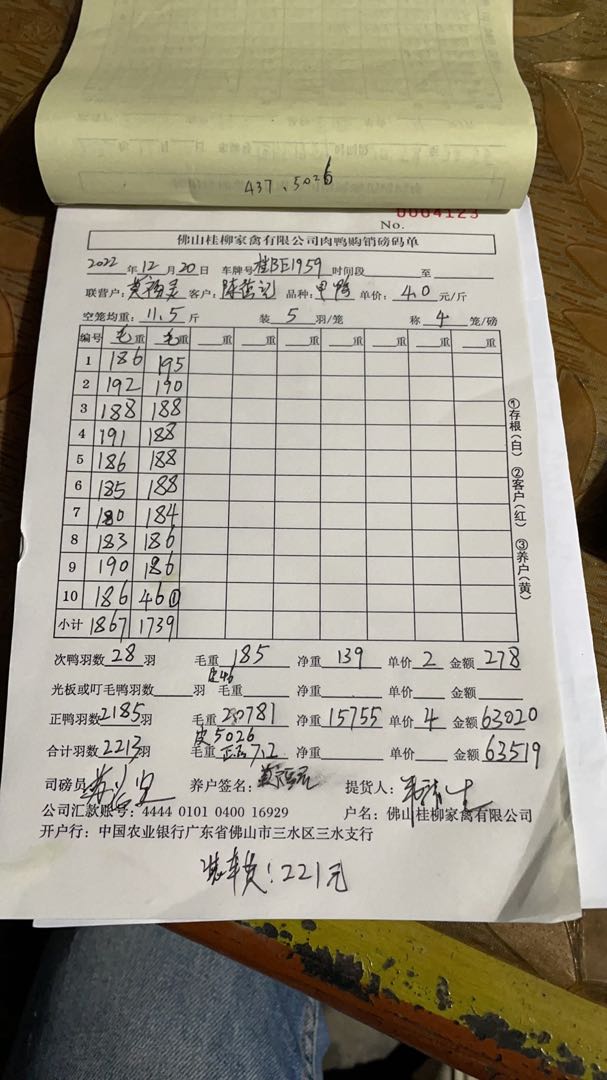 437.5026
No. 0004123
佛山桂柳家禽有限公司肉鸭购销磅码单
2022年12月20日 车牌号桂BE1959 时间段 至
联营户: 客户:陈哲记 品种:甲鸭 单价:4.0元/斤
空笼均重:11.5斤 装5羽/笼 称4笼/磅
编号 毛重 毛重 重 重 重 重 重 重
1 186 195
2 192 190
3 188 188
4 191 188
5 186 188
6 185 188
7 180 184
8 183 186
9 190 186
10 186 46①
小计 1867 1739
①存根(白) ②客户(红) ③养户(黄)
次鸭羽数28羽 毛重185 净重139 单价2 金额278
皮46
光板或叮毛鸭羽数 羽 毛重 净重 单价 金额
正鸭羽数2185羽 毛重20781 净重15755 单价4 金额63020
皮5026
合计羽数2213羽 毛重 正品7.2 净重 单价 金额63519
司磅员 养户签名: 提货人:
公司汇款账号: 4444 0101 0400 16929 户名: 佛山桂柳家禽有限公司
开户行: 中国农业银行广东省佛山市三水区三水支行
装车费:221元